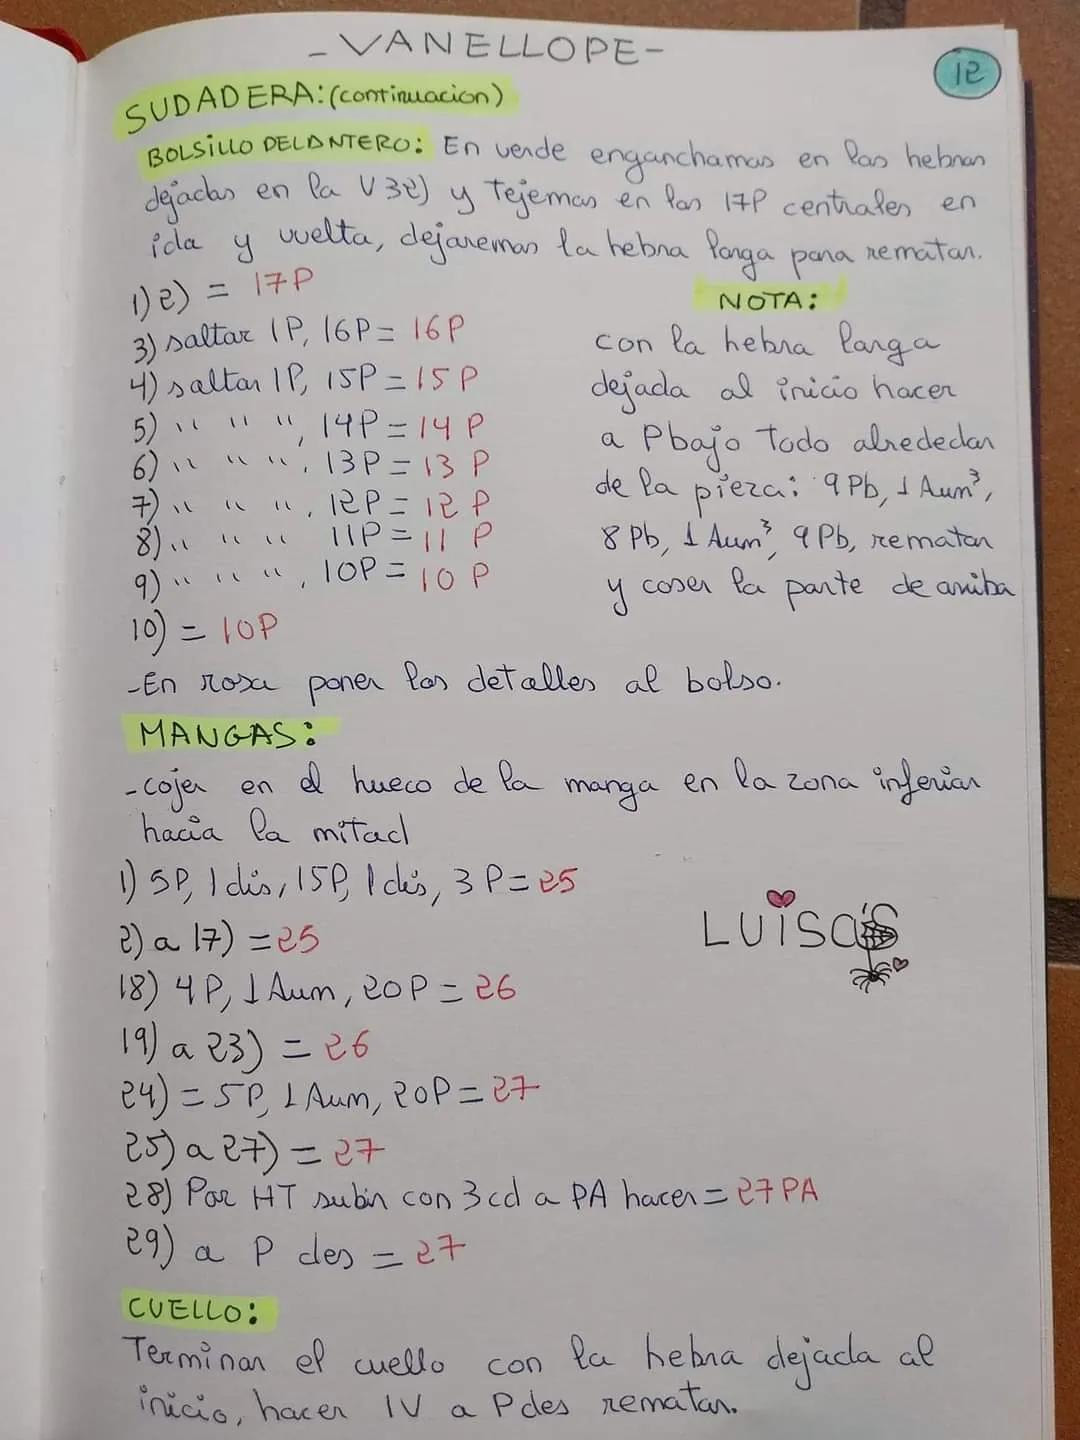 - VANELLOPE -
12
SUDADERA: (continuacion)
BOLSILLO DELANTERO: En verde enganchamos en las hebras
dejadas en la V32) y Tejemos en los 17P centrales en
ida y vuelta, dejaremos la hebra larga para rematar.
1) 2) = 17P
3) saltar 1P, 16P = 16P
4) saltar 1P, 15P = 15P
5) " " ", 14P = 14P
6) " " ", 13P = 13P
7) " " ", 12P = 12P
8) " " " 11P = 11P
9) " " ", 10P = 10P
10) = 10P
NOTA:
con la hebra larga
dejada al inicio hacer
a Pbajo Todo alrededor
de la pieza: 9Pb, 1 Aum³,
8Pb, 1 Aum³, 9Pb, rematar
y coser la parte de arriba
-En rosa poner los detalles al bolso.
MANGAS:
-cojer en el hueco de la manga en la zona inferior
hacia la mitad
1) 5P, 1 dis, 15P, 1 dis, 3P = 25
2) a 17) = 25
18) 4P, 1 Aum, 20P = 26
19) a 23) = 26
24) = 5P, 1 Aum, 20P = 27
25) a 27) = 27
28) Por HT subir con 3cd a PA hacer = 27PA
29) a P des = 27
LUISA'S
CUELLO:
Terminar el cuello con la hebra dejada al
inicio, hacer 1V a Pdes rematar.